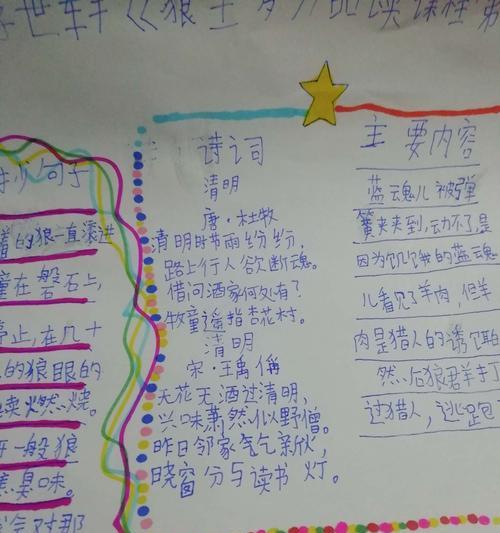 狼王梦》品读课程
少句子
着的狼一直滚进
撞在磐石上,
停止,在几十
的狼眼的
续燃烧。
一般狼
焦臭味。
对那
诗词
清明
唐·杜牧
清明时节雨纷纷,
路上行人欲断魂。
借问酒家何处有?
牧童遥指杏花村。
清明
宋·王禹偁
无花无酒过清明,
兴味萧然似野僧。
昨日邻家乞新火,
晓窗分与读书灯。
主要内容
蓝魂儿被弹
簧夹夹到,动不了,是
因为饥饿的蓝魂
儿看见了羊肉,但羊
肉是猎人的诱饵
然后狼群羊
过猎人,逃跑